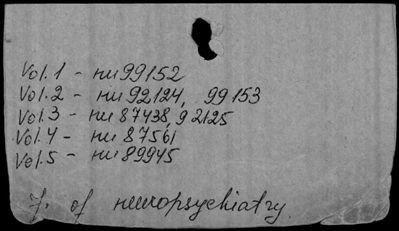 Vol. 1 - нц 99152
Vol. 2 - нц 92124, 99153
Vol. 3 - нц 87438, 92125
Vol. 4 - нц 87561
Vol. 5 - нц 89945
J. of neuropsychiatry.